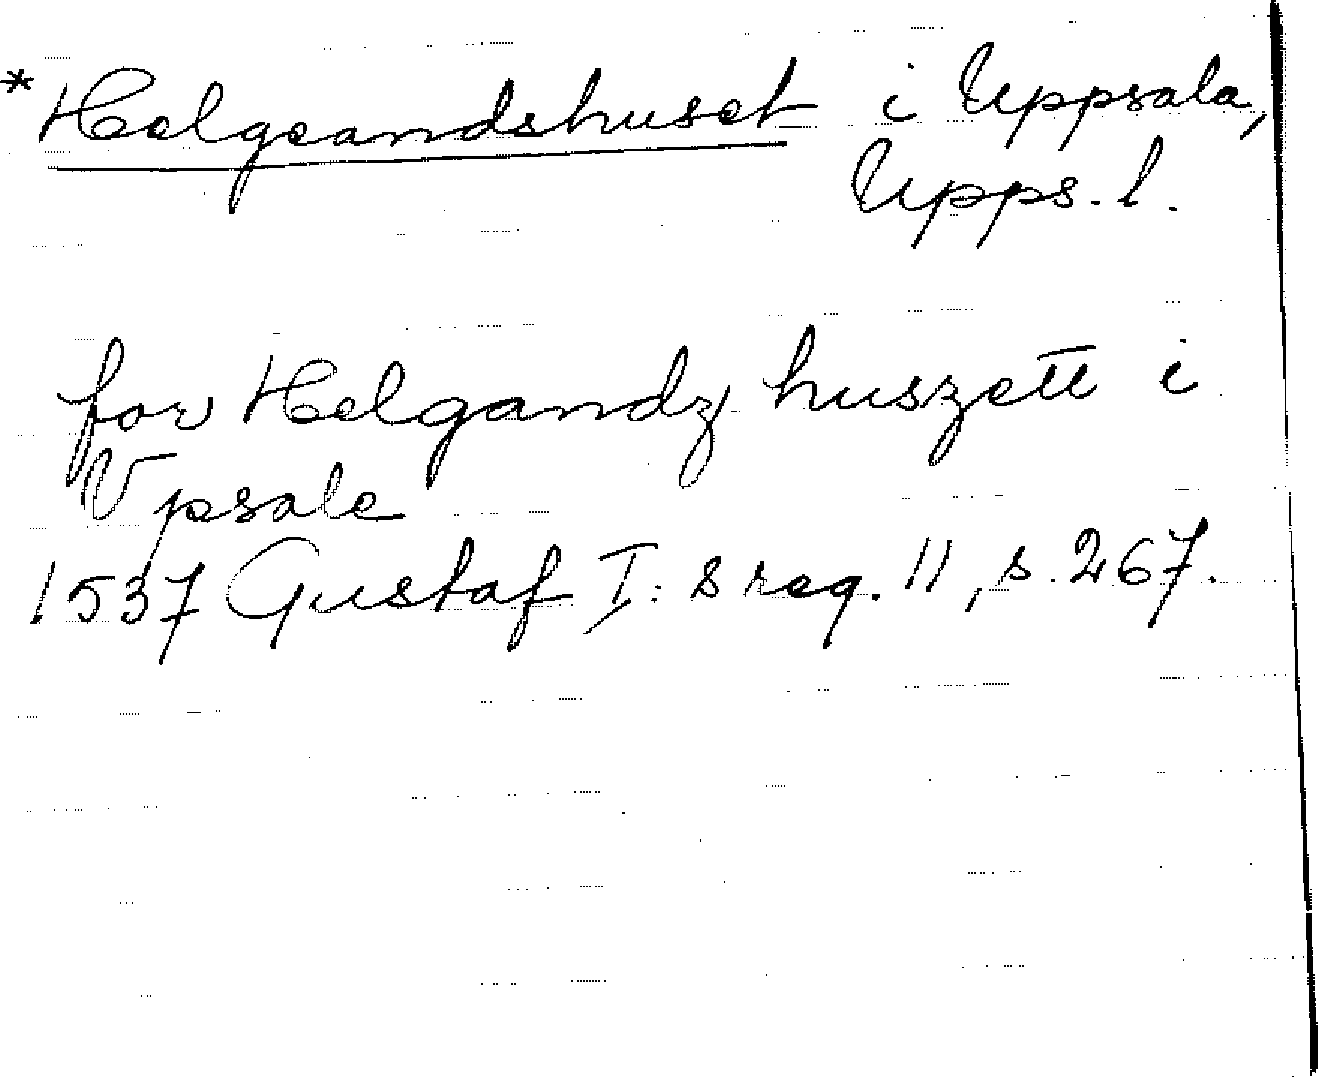 *Helgeandshuset i Uppsala,
Upps. l.
for Helgandz huszett i
Vpsale
1537 Gustaf I:s reg. 11, s. 267.